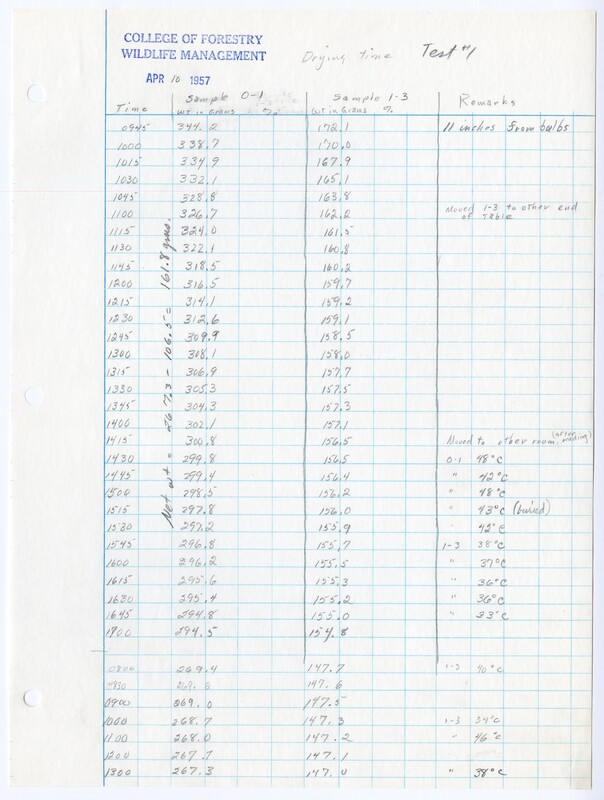 COLLEGE OF FORESTRY
WILDLIFE MANAGEMENT
Drying time Test #1
APR 10 1957
Sample 0-1 Sample 1-3 Remarks
Time wt in Grams % wt in Grams %
0945 344.2 172.1 11 inches from bulbs
1000 338.7 170.0
1015 334.9 167.9
1030 332.1 165.1
1045 328.8 163.8
1100 326.7 162.2 Moved 1-3 to other end
of Table
1115 324.0 161.5
1130 322.1 160.8
1145 318.5 160.2
1200 316.5 159.7
1215 314.1 159.2
1230 312.6 159.1
1245 309.9 158.5
1300 308.1 158.0
1315 306.9 157.7
1330 305.3 157.5
1345 304.3 157.3
1400 302.1 157.1
1415 300.8 156.5 Moved to other room (after reading)
1430 299.8 156.5 0-1 48°C
1445 299.4 156.4 " 42°C
1500 298.5 156.2 " 48°C
1515 297.8 156.0 " 43°C (buried)
1530 297.2 155.9 " 42°C
1545 296.8 155.7 1-3 38°C
1600 296.2 155.5 " 37°C
1615 295.6 155.3 " 36°C
1630 295.4 155.2 " 36°C
1645 294.8 155.0 " 33°C
1700 294.5 154.8
0800 269.4 147.7 1-3 40°C
0830 269. 147.6
0900 269.0 147.5
1000 268.7 147.3 1-3 34°C
1100 268.0 147.2 " 46°C
1200 267.7 147.1
1300 267.3 147.0 " 38°C
Net wt = 267.3 - 106.5 = 161.8 gms.